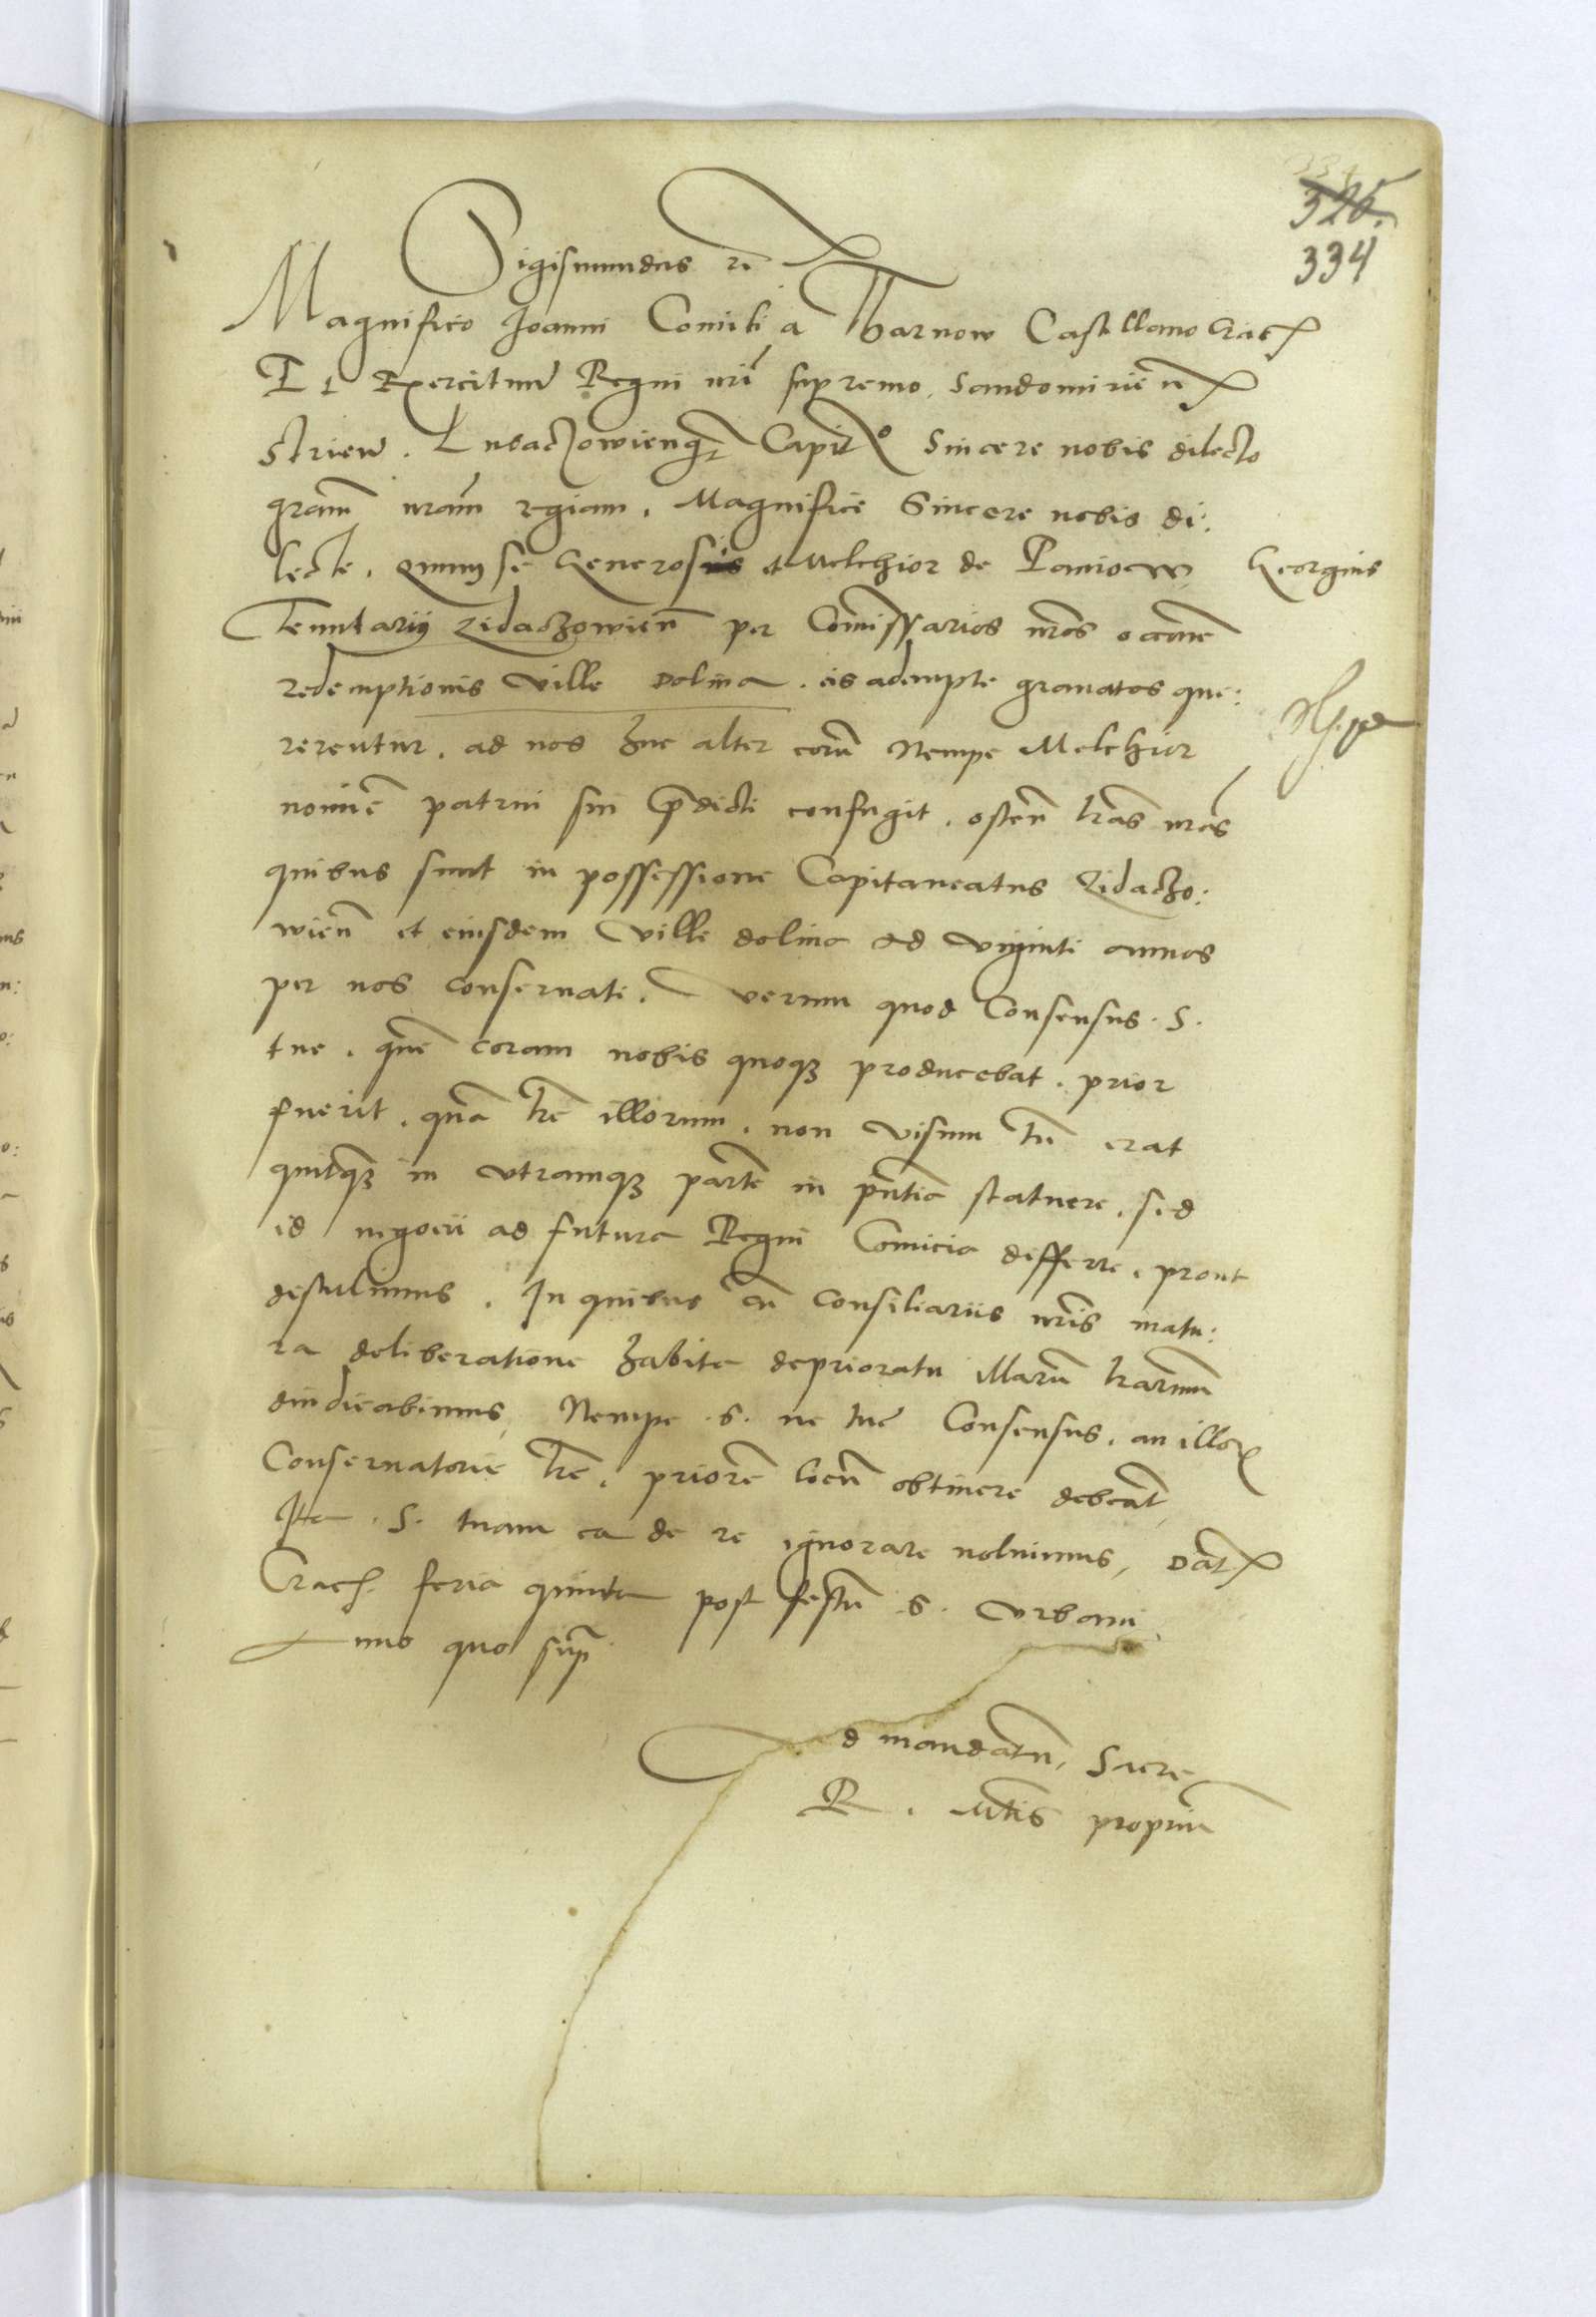 325.
334
Sigismundus rc
Magnifico Joanni Comiti a Tharnow Castellano Crac
Et Exercituu Regni nri supremo, Sandomirien
Strien. Lubaczowienq Capito Sincere nobis dilecto
gram nram regiam. Magnifice Sincere nobis di:
lecte. Quum se Generosus et Melchior de Paniow Georgius
Tenutarii Zidaczowien per Comissarios nros occone
redemptionis ville Dolina. eis adempte gravatos que:
rerentur. ad nos huc alter eoru Nempe Melchior
nomine patrui sui pdicti confugit. osten lras nras
quibus sunt in possessione Capitaneatus Zidaczo:
wien et eiusdem ville dolina ad viginti annos
per nos conservati. Verum quod Consensus. S.
tue. que coram nobis quoq3 producebat. prior
fuerit. qua lre illorum. non visum tn erat
quitq3 in utramq3 parte in pntia statuere. sed
id negocii ad futura Regni Comicia differre. prout
destulimus. In quibus cu consiliariis nris matu:
ra deliberatione habita deprioratu illaru lrarum
diudicabimus, Nempe. S. ne tue Consensus. an illor
Conservatorie lre. priore locu obtinere debeat,
Ita. S. tuam ea de re ignorare noluimus, Dat
Crac. feria quinta post festu S. Urbani
Anno quo sup
Ad mandatu Sacre
R. Mtis propriu